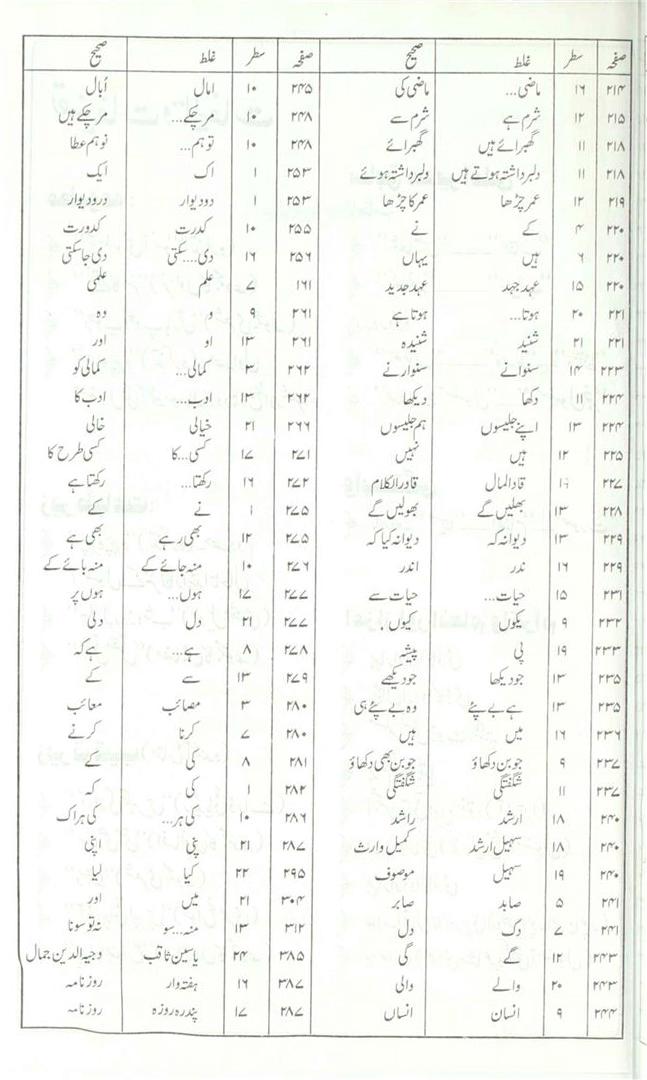 صفحہ سطر غلط صحیح صفحہ سطر غلط صحیح
۲۱۴ ۱۶ ماضی... ماضی کی ۲۴۵ ۱۰ امال اُبال
۲۱۵ ۱۲ شرم ہے شرم سے ۲۴۸ ۱۰ مرچکے... مرچکے ہیں
۲۱۸ ۱۱ گھبرائے ہیں گھبرائے ۲۴۸ ۱۰ توہم... نوہم عطا
۲۱۸ ۱۱ دلبرداشتہ ہوتے ہیں دلبرداشتہ ہوئے ۲۵۳ ۱ اک ایک
۲۱۹ ۱۲ عمر چڑھا عمر کا چڑھا ۲۵۳ ۱ دودیوار درودیوار
۲۲۰ ۴ کے نے ۲۵۵ ۱۰ کدرت کدورت
۲۲۰ ۶ ہیں یہاں ۲۵۶ ۱۶ دی...سکتی دی جاسکتی
۲۲۰ ۱۵ عہد جہد عہد جدید ۱۶۱ ۷ علم علمی
۲۲۱ ۲۰ ہوتا... ہوتا ہے ۲۶۱ ۹ و وہ
۲۲۱ ۲۱ شنید شنیدہ ۲۶۱ ۱۳ او اور
۲۲۳ ۱۴ سنوانے سنوارنے ۲۶۲ ۳ کمالی... کمالی کو
۲۲۴ ۱۱ دکھا دیکھا ۲۶۲ ۱۳ ادب... ادب کا
۲۲۴ ۱۳ اپنے جلیسوں ہم جلیسوں ۲۶۶ ۲۱ خیالی خالی
۲۲۵ ۱۲ ہیں نہیں ۲۷۱ ۱۷ کسی...کا کسی طرح کا
۲۲۷ قادالمال قادرالکلام ۲۷۲ ۱۶ رکھتا... رکھتا ہے
۲۲۸ ۱۳ بھلیں گے بھولیں گے ۲۷۵ ۱ نے کے
۲۲۹ ۱۳ دیوانہ کہ دیوانہ کیا کہ ۲۷۵ ۱۲ بھی رہے بھی ہے
۲۲۹ ۱۶ ندر اندر ۲۷۶ ۱۰ منہ جائے کے منہ ہائے کے
۲۳۱ ۱۵ حیات... حیات سے ۲۷۷ ۱۷ ہوں... ہوں پر
۲۳۲ ۹ یکوں کیوں ۲۷۷ ۲۱ دل دلی
۲۳۳ ۱۹ پی پیشر ۲۷۸ ۸ ہے... ہے کہ
۲۳۵ ۱۳ جو دیکھا جو دیکھے ۲۷۹ ۱۳ سے کے
۲۳۵ ۱۳ ہے بے پئے وہ بے پئے ہی ۲۸۰ ۳ مصائب معائب
۲۳۶ ۱۶ میں ہیں ۲۸۰ ۷ کرنا کرنے
۲۳۷ ۹ جوبن دکھاؤ جوبن بھی دکھاؤ ۲۸۱ ۸ کی کے
۲۳۷ ۱۱ شگفتگی شگفتگی ۲۸۲ ۱ کی کہ
۲۴۰ ۱۸ ارشد راشد ۲۸۶ ۱۰ کی ہر... کی ہر اک
۲۴۰ ۱۸ سہیل ارشد کمیل وارث ۲۸۷ ۲۱ پنی اپنی
۲۴۰ ۱۹ سہیل موصوف ۲۹۵ ۲۲ کیا لیا
۲۴۱ ۵ صابد صابر ۳۰۴ ۲۱ میں اور
۲۴۱ ۷ دک دل ۳۱۲ ۱۳ منہ...سو نہ تو سونا
۲۴۳ ۱۲ گے گی ۳۸۵ ۲۴ یاسین ثاقب وجیہ الدین جمال
۲۴۳ ۲۰ والے والی ۳۸۷ ۱۶ ہفتہ وار روزنامہ
۲۴۴ ۹ انسان انساں ۲۸۷ ۱۷ پندرہ روزہ روزنامہ